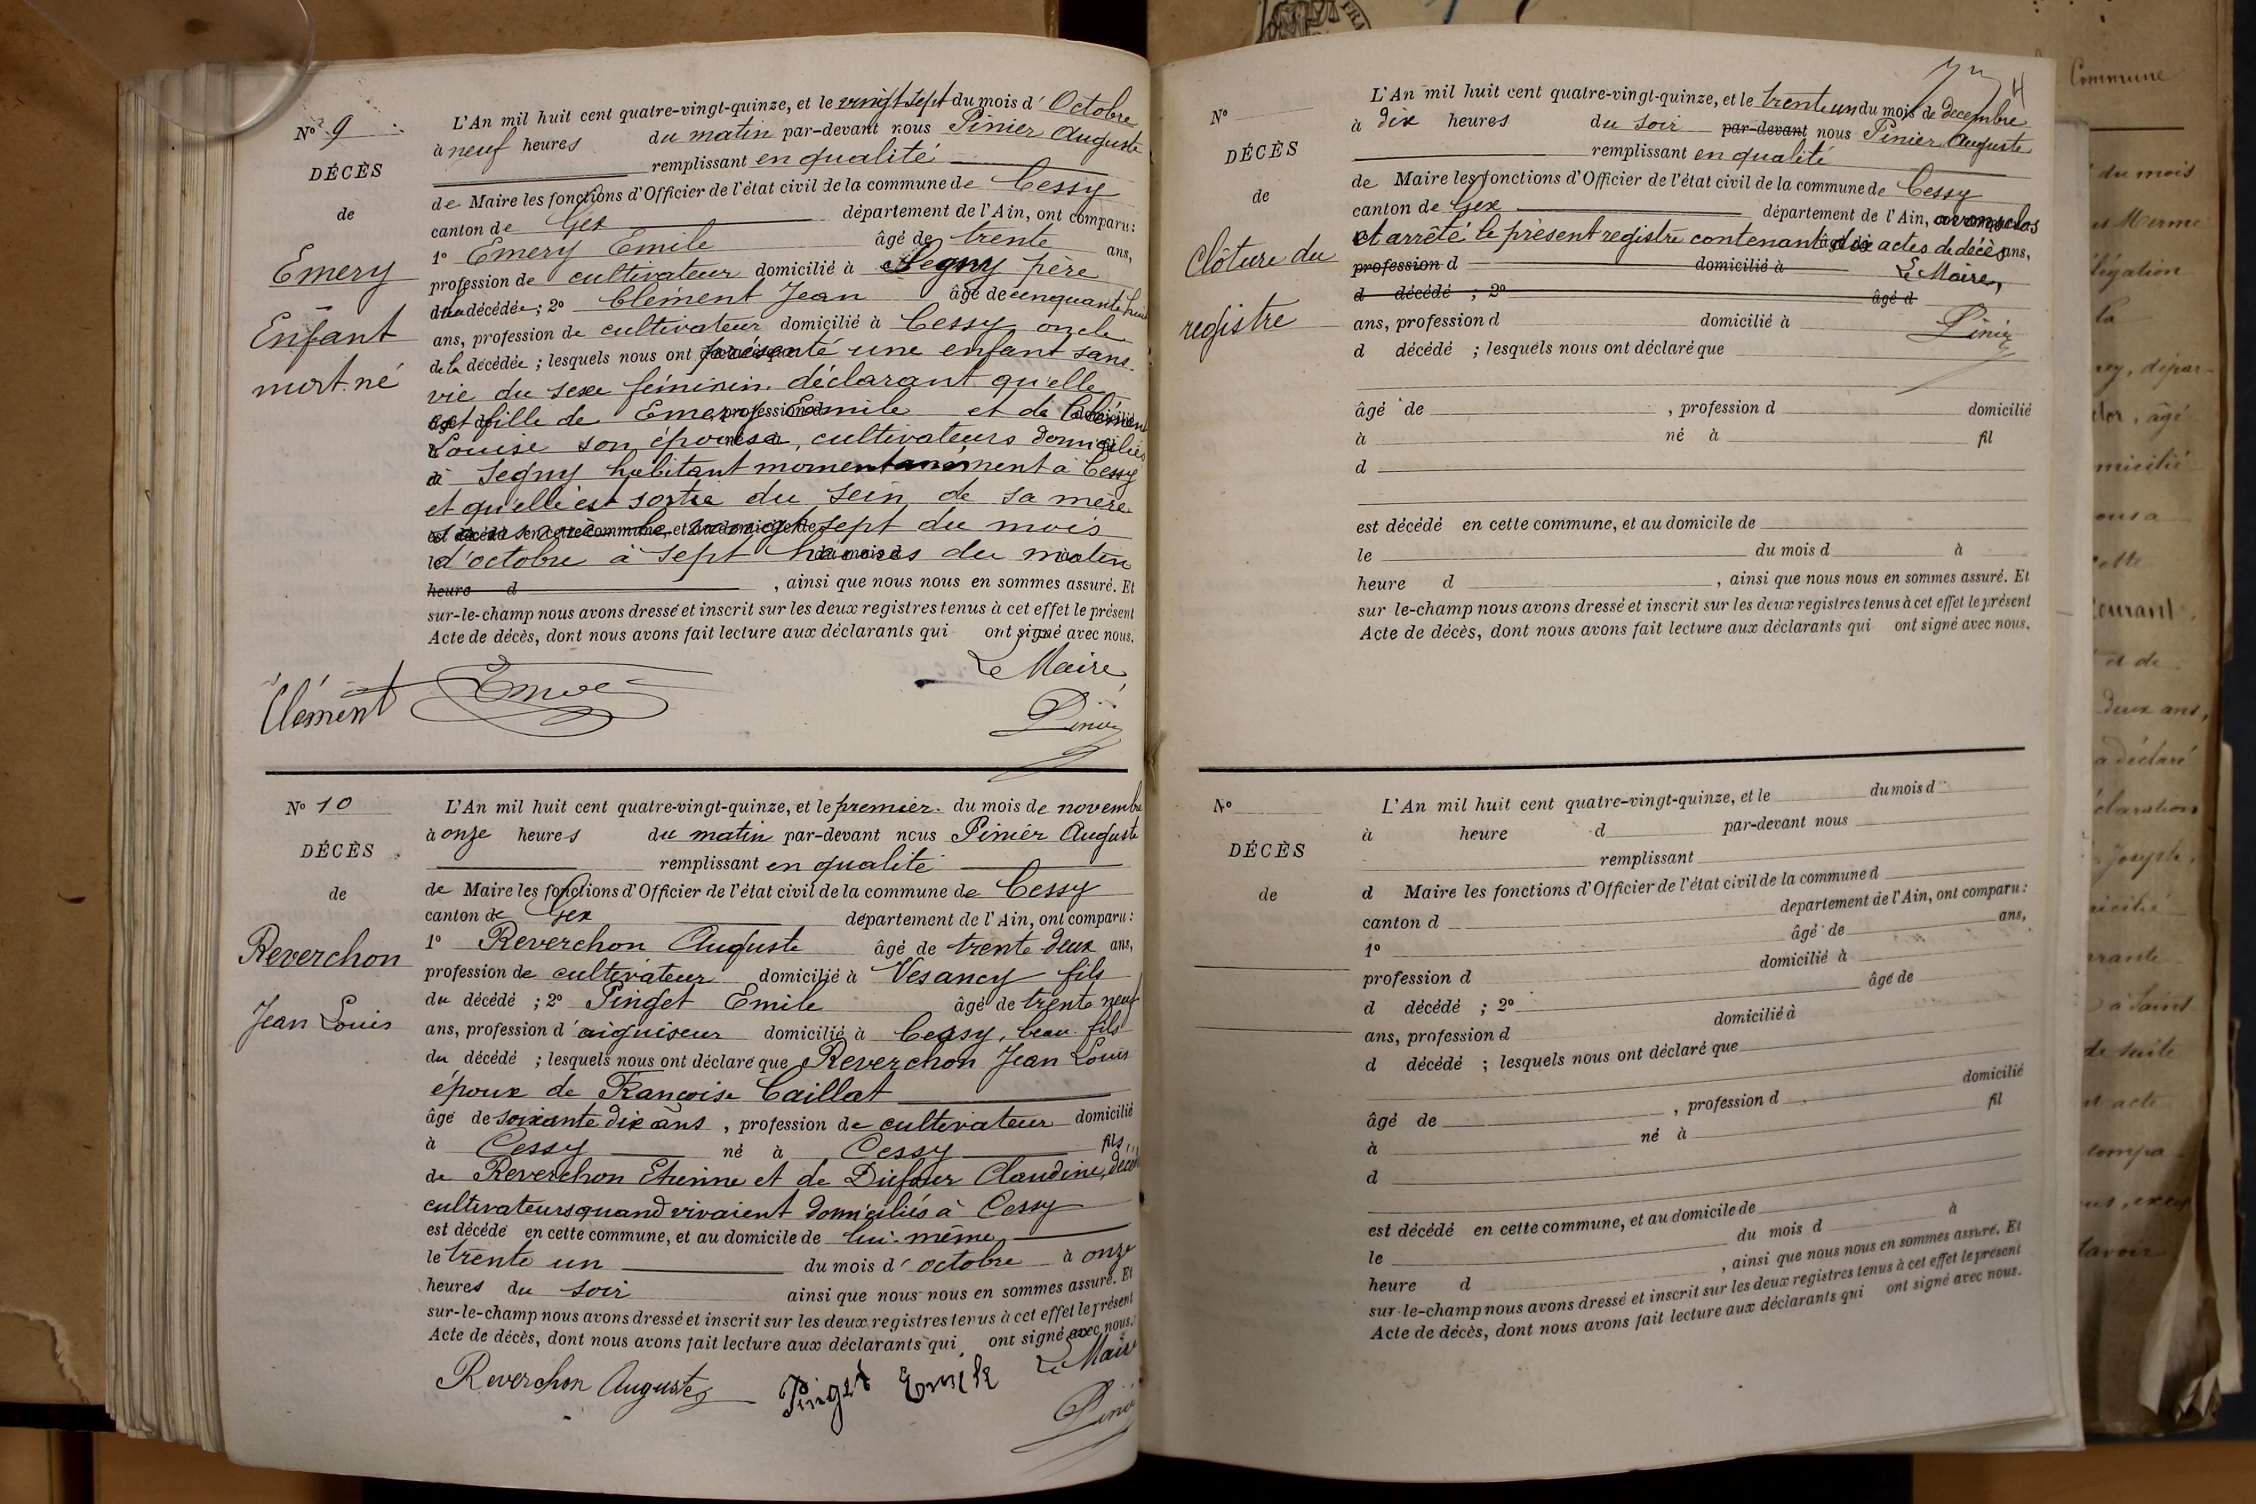 N° 9
DÉCÈS
de
Emery
Enfant
mort-né
L'An mil huit cent quatre-vingt-quinze, et le vingt sept du mois d'Octobre
à neuf heures du matin par-devant nous Pinier Auguste
remplissant en qualité
de Maire les fonctions d'Officier de l'état civil de la commune de Cessy
canton de Gex département de l'Ain, ont comparu :
1° Emery Emile âgé de trente ans,
profession de cultivateur domicilié à Segny père
de la décédée ; 2° Clément Jean âgé de cinquante huit
ans, profession de cultivateur domicilié à Cessy oncle
de la décédée ; lesquels nous ont présenté une enfant sans
vie du sexe féminin déclarant qu'elle
est fille de Emery Emile et de Clément
Louise son épouse, cultivateurs domiciliés
à Segny habitant momentanément à Cessy
et qu'elle est sortie du sein de sa mère
sans vie le vingt sept du mois
d'octobre à sept heures du matin
heure d , ainsi que nous nous en sommes assuré. Et
sur-le-champ nous avons dressé et inscrit sur les deux registres tenus à cet effet le présent
Acte de décès, dont nous avons fait lecture aux déclarants qui ont signé avec nous.
Le Maire,
Clément Emery Pinier
N° 10
DÉCÈS
de
Reverchon
Jean Louis
L'An mil huit cent quatre-vingt-quinze, et le premier du mois de novembre
à onze heures du matin par-devant nous Pinier Auguste
remplissant en qualité
de Maire les fonctions d'Officier de l'état civil de la commune de Cessy
canton de Gex département de l'Ain, ont comparu :
1° Reverchon Auguste âgé de trente deux ans,
profession de cultivateur domicilié à Vesancy fils
du décédé ; 2° Pinget Emile âgé de trente neuf
ans, profession d'aiguiseur domicilié à Cessy, beau-fils
du décédé ; lesquels nous ont déclaré que Reverchon Jean Louis
époux de Françoise Caillat
âgé de soixante dix ans , profession de cultivateur domicilié
à Cessy né à Cessy fils
de Reverchon Etienne et de Dufour Claudine,
cultivateurs quand vivaient domiciliés à Cessy
est décédé en cette commune, et au domicile de lui-même
le trente un du mois d'octobre à onze
heures du soir ainsi que nous nous en sommes assuré. Et
sur-le-champ nous avons dressé et inscrit sur les deux registres tenus à cet effet le présent
Acte de décès, dont nous avons fait lecture aux déclarants qui ont signé avec nous.
Le Maire
Reverchon Auguste Pinget Emile Pinier
4
N°
DÉCÈS
de
Clôture du
registre
L'An mil huit cent quatre-vingt-quinze, et le trente un du mois de décembre
à dix heures du soir par-devant nous Pinier Auguste
remplissant en qualité
de Maire les fonctions d'Officier de l'état civil de la commune de Cessy
canton de Gex département de l'Ain, avons clos
et arrêté le présent registre contenant dix actes de décès ans,
profession d domicilié à Le Maire,
d décédé ; 2° âgé d
ans, profession d domicilié à Pinier
d décédé ; lesquels nous ont déclaré que
âgé de , profession d domicilié
à né à fil
d
est décédé en cette commune, et au domicile de
le du mois d à
heure d , ainsi que nous nous en sommes assuré. Et
sur le-champ nous avons dressé et inscrit sur les deux registres tenus à cet effet le présent
Acte de décès, dont nous avons fait lecture aux déclarants qui ont signé avec nous.
N°
DÉCÈS
de
L'An mil huit cent quatre-vingt-quinze, et le du mois d
à heure d par-devant nous
remplissant
d Maire les fonctions d'Officier de l'état civil de la commune d
canton d département de l'Ain, ont comparu :
1° âgé de ans,
profession d domicilié à
d décédé ; 2° âgé de
ans, profession d domicilié à
d décédé ; lesquels nous ont déclaré que
âgé de , profession d domicilié
à né à fil
d
est décédé en cette commune, et au domicile de
le du mois d à
heure d , ainsi que nous nous en sommes assuré. Et
sur-le-champ nous avons dressé et inscrit sur les deux registres tenus à cet effet le présent
Acte de décès, dont nous avons fait lecture aux déclarants qui ont signé avec nous.
Commune
du mois
la
courant
et de
deux ans,
a déclaré
Joseph
de suite
acte